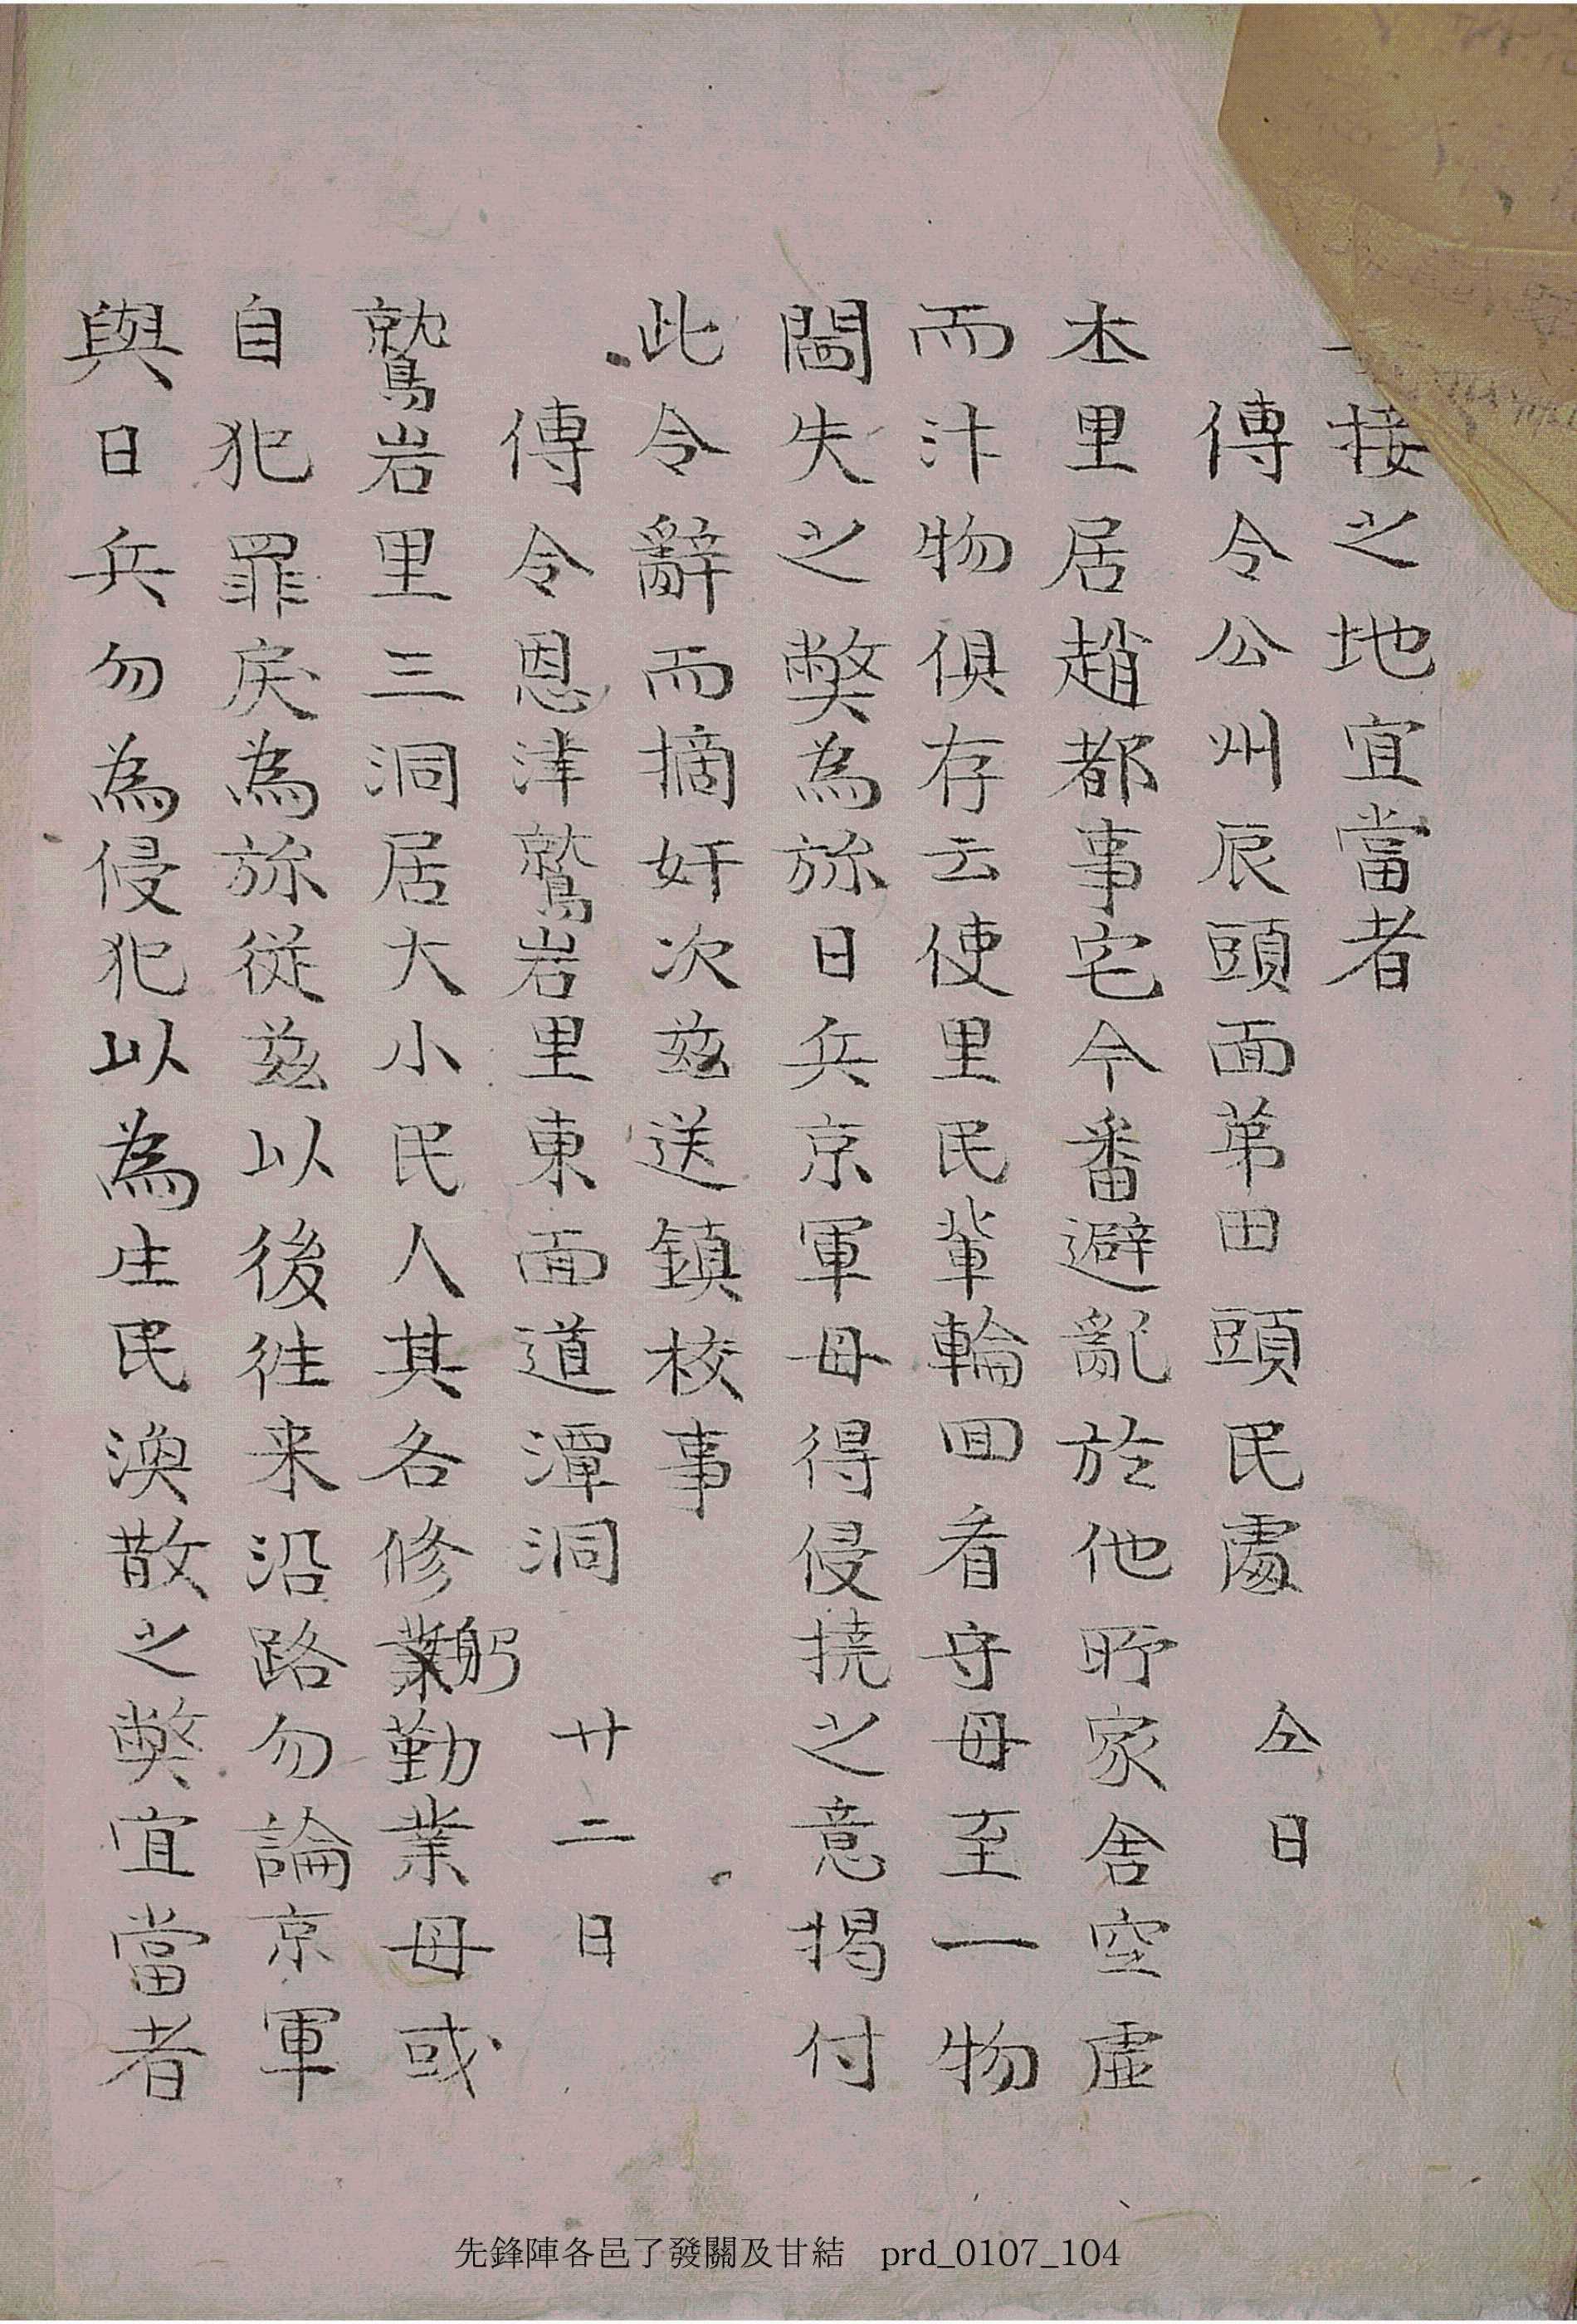 接之地宜當者
傳令公州辰頭面苐田頭民處 仝日
本里居趙都事宅今番避亂於他所家舍空虛
而汴物俱存云使里民輩輪回看守毋至一物
閪失之弊為旀日兵京軍毋得侵撓之意揭付
此令辭而摘奸次玆送鎭校事
傳令恩津鷲岩里東面道潭洞 廿二日
鷲岩里三洞居大小民人其各修業躬勤業毋或
自犯罪戾為旀從玆以後往来沿路勿論京軍
與日兵勿為侵犯以為生民渙散之弊宜當者
先鋒陣各邑了發關及甘結 prd_0107_104